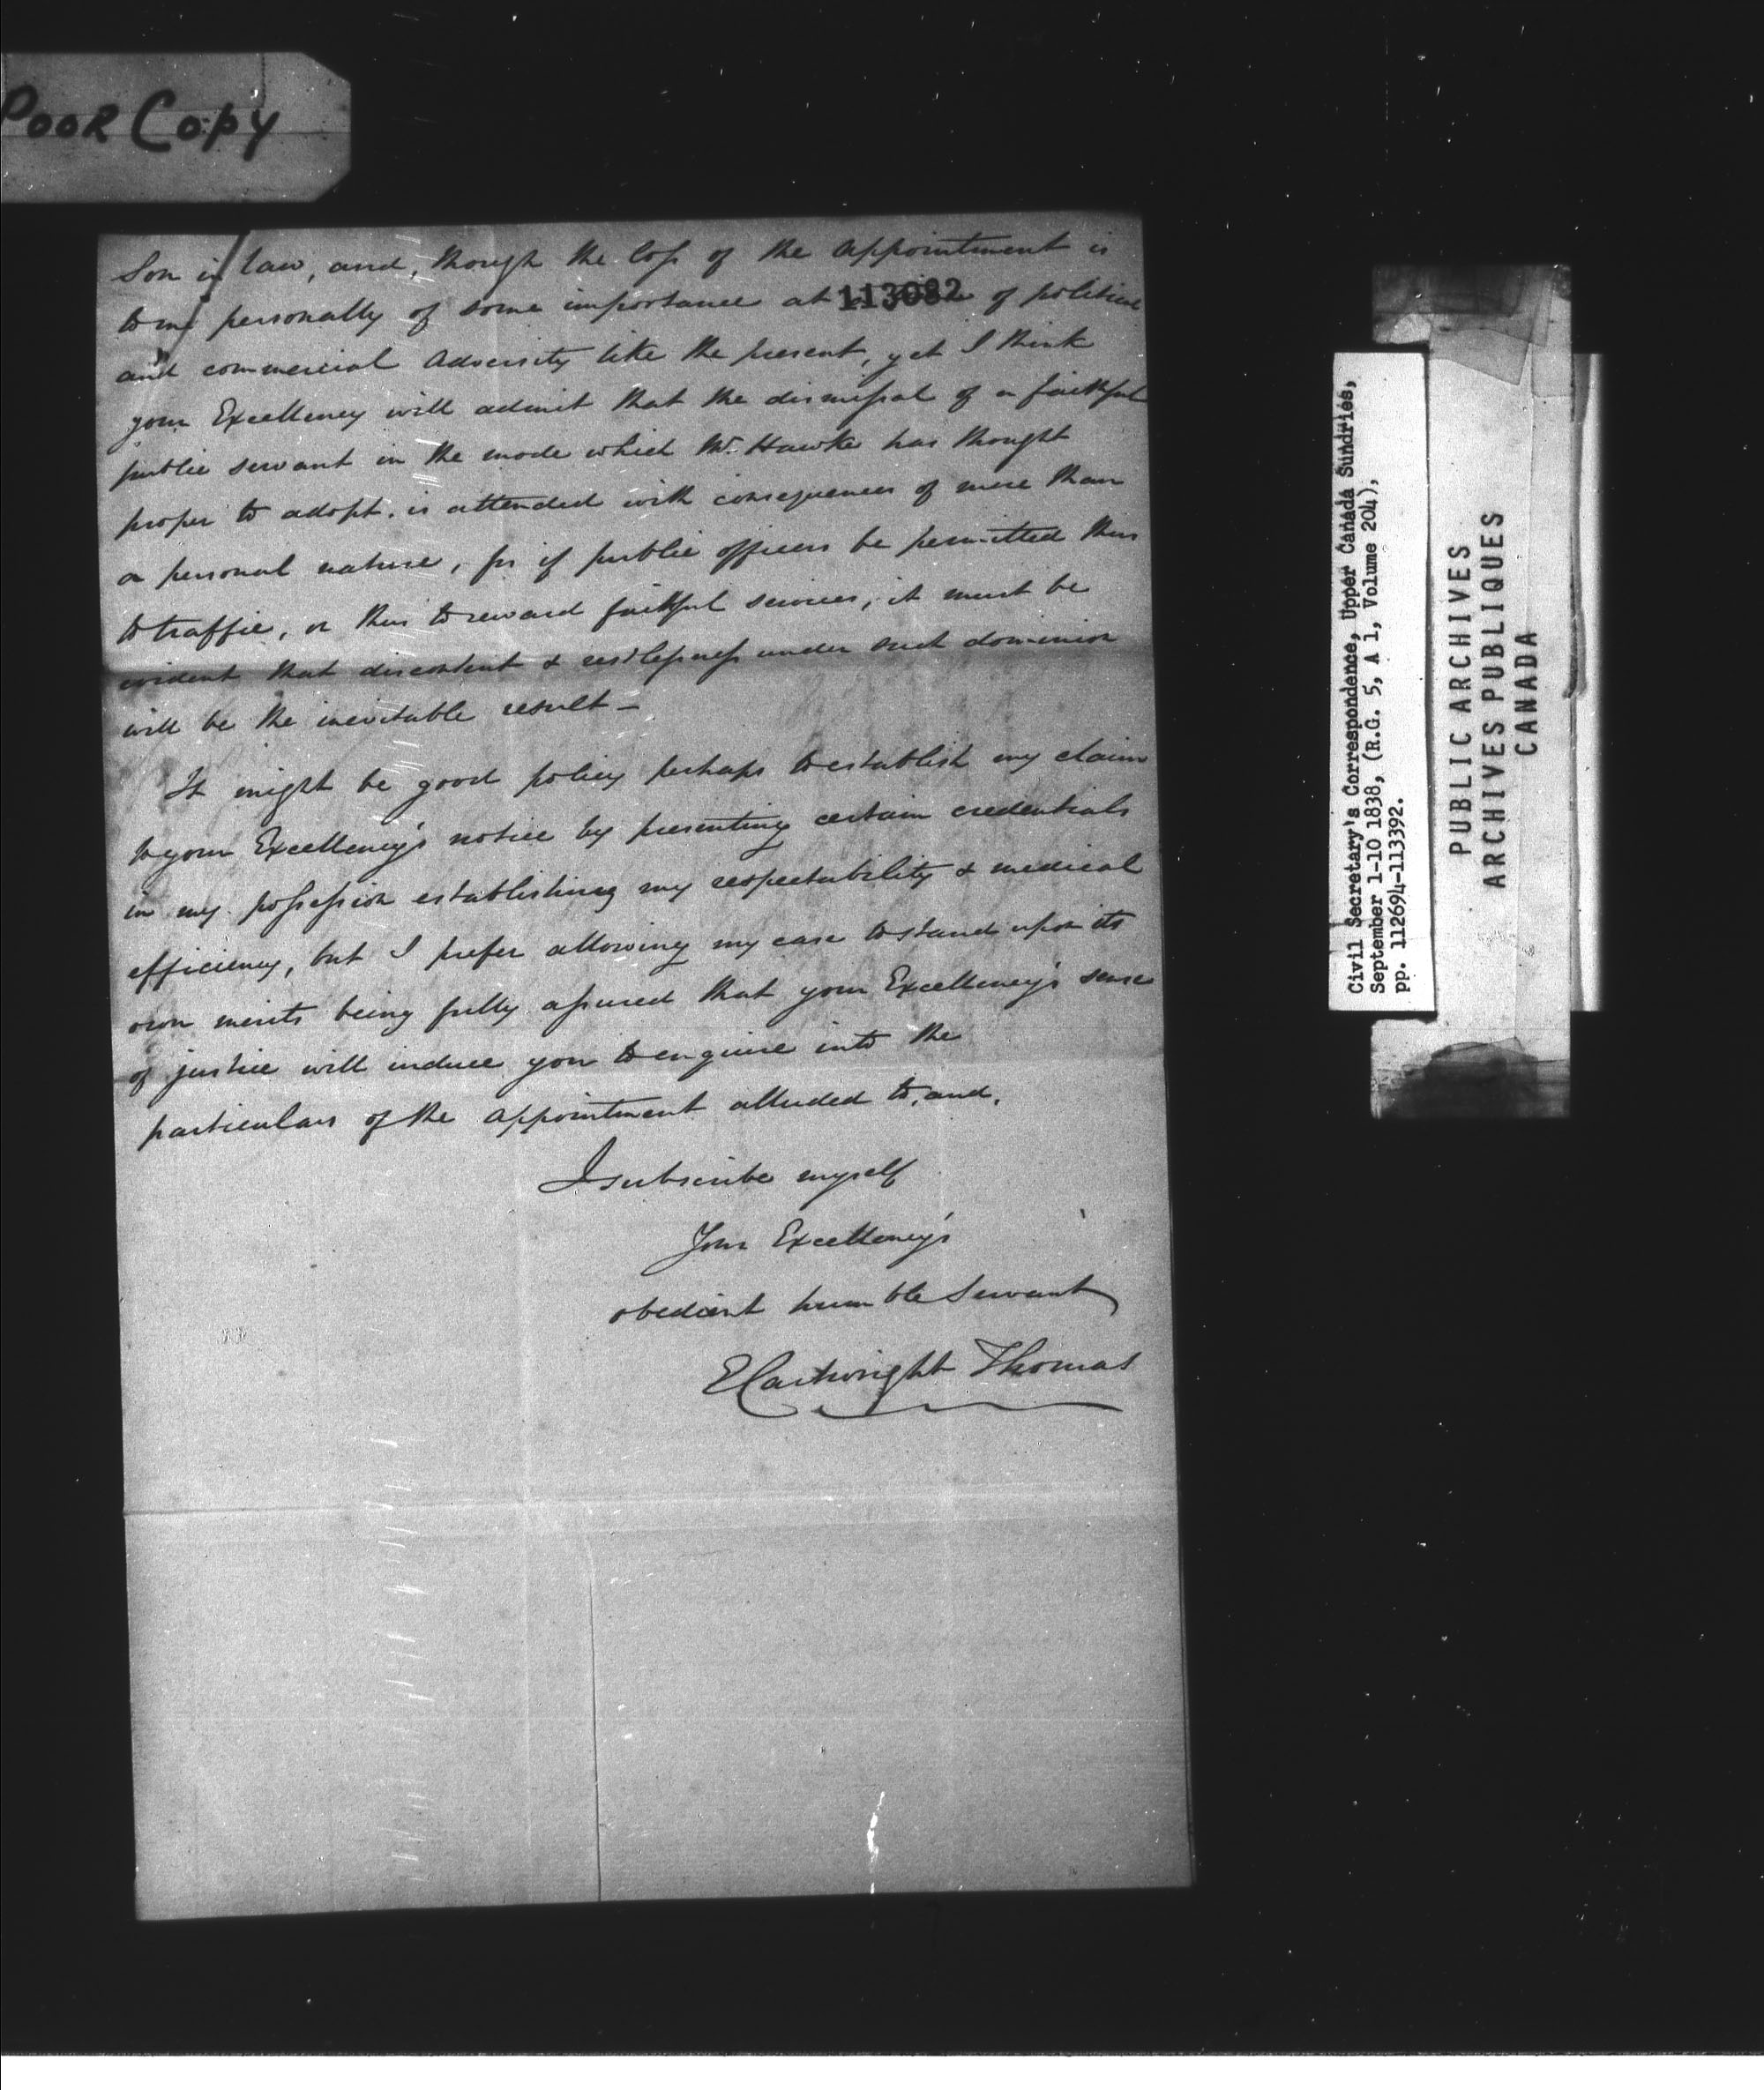 Poor Copy
Son in law, and, though the loss of the appointment is
to me personally of some importance at 113082 of political
and commercial adversity like the present, yet I think
your Excellency will admit that the dismissal of a faithful
public servant in the mode which Mr. Hawke has thought
proper to adopt. is attended with consequences of more than
a personal nature, for if public officers be permitted thus
to traffic, or thus to reward faithful services, it must be
evident that discontent & restlessness under such dominion
will be the inevitable result –
It might be good policy perhaps to establish my claim
to your Excellency's notice by presenting certain credentials
in my possession establishing my respectability & medical
efficiency, but I prefer allowing my case to stand upon its
own merits being fully assured that your Excellency's sense
of justice will induce you to enquire into the
particulars of the appointment alluded to, and,
I subscribe myself
Your Excellency's
obedient humble Servant
E Cartwright Thomas
Civil Secretary's Correspondence, Upper Canada Sundries,
September 1-10 1838, (R.G. 5, A 1, Volume 204),
pp. 112694-113392.
PUBLIC ARCHIVES
ARCHIVES PUBLIQUES
CANADA